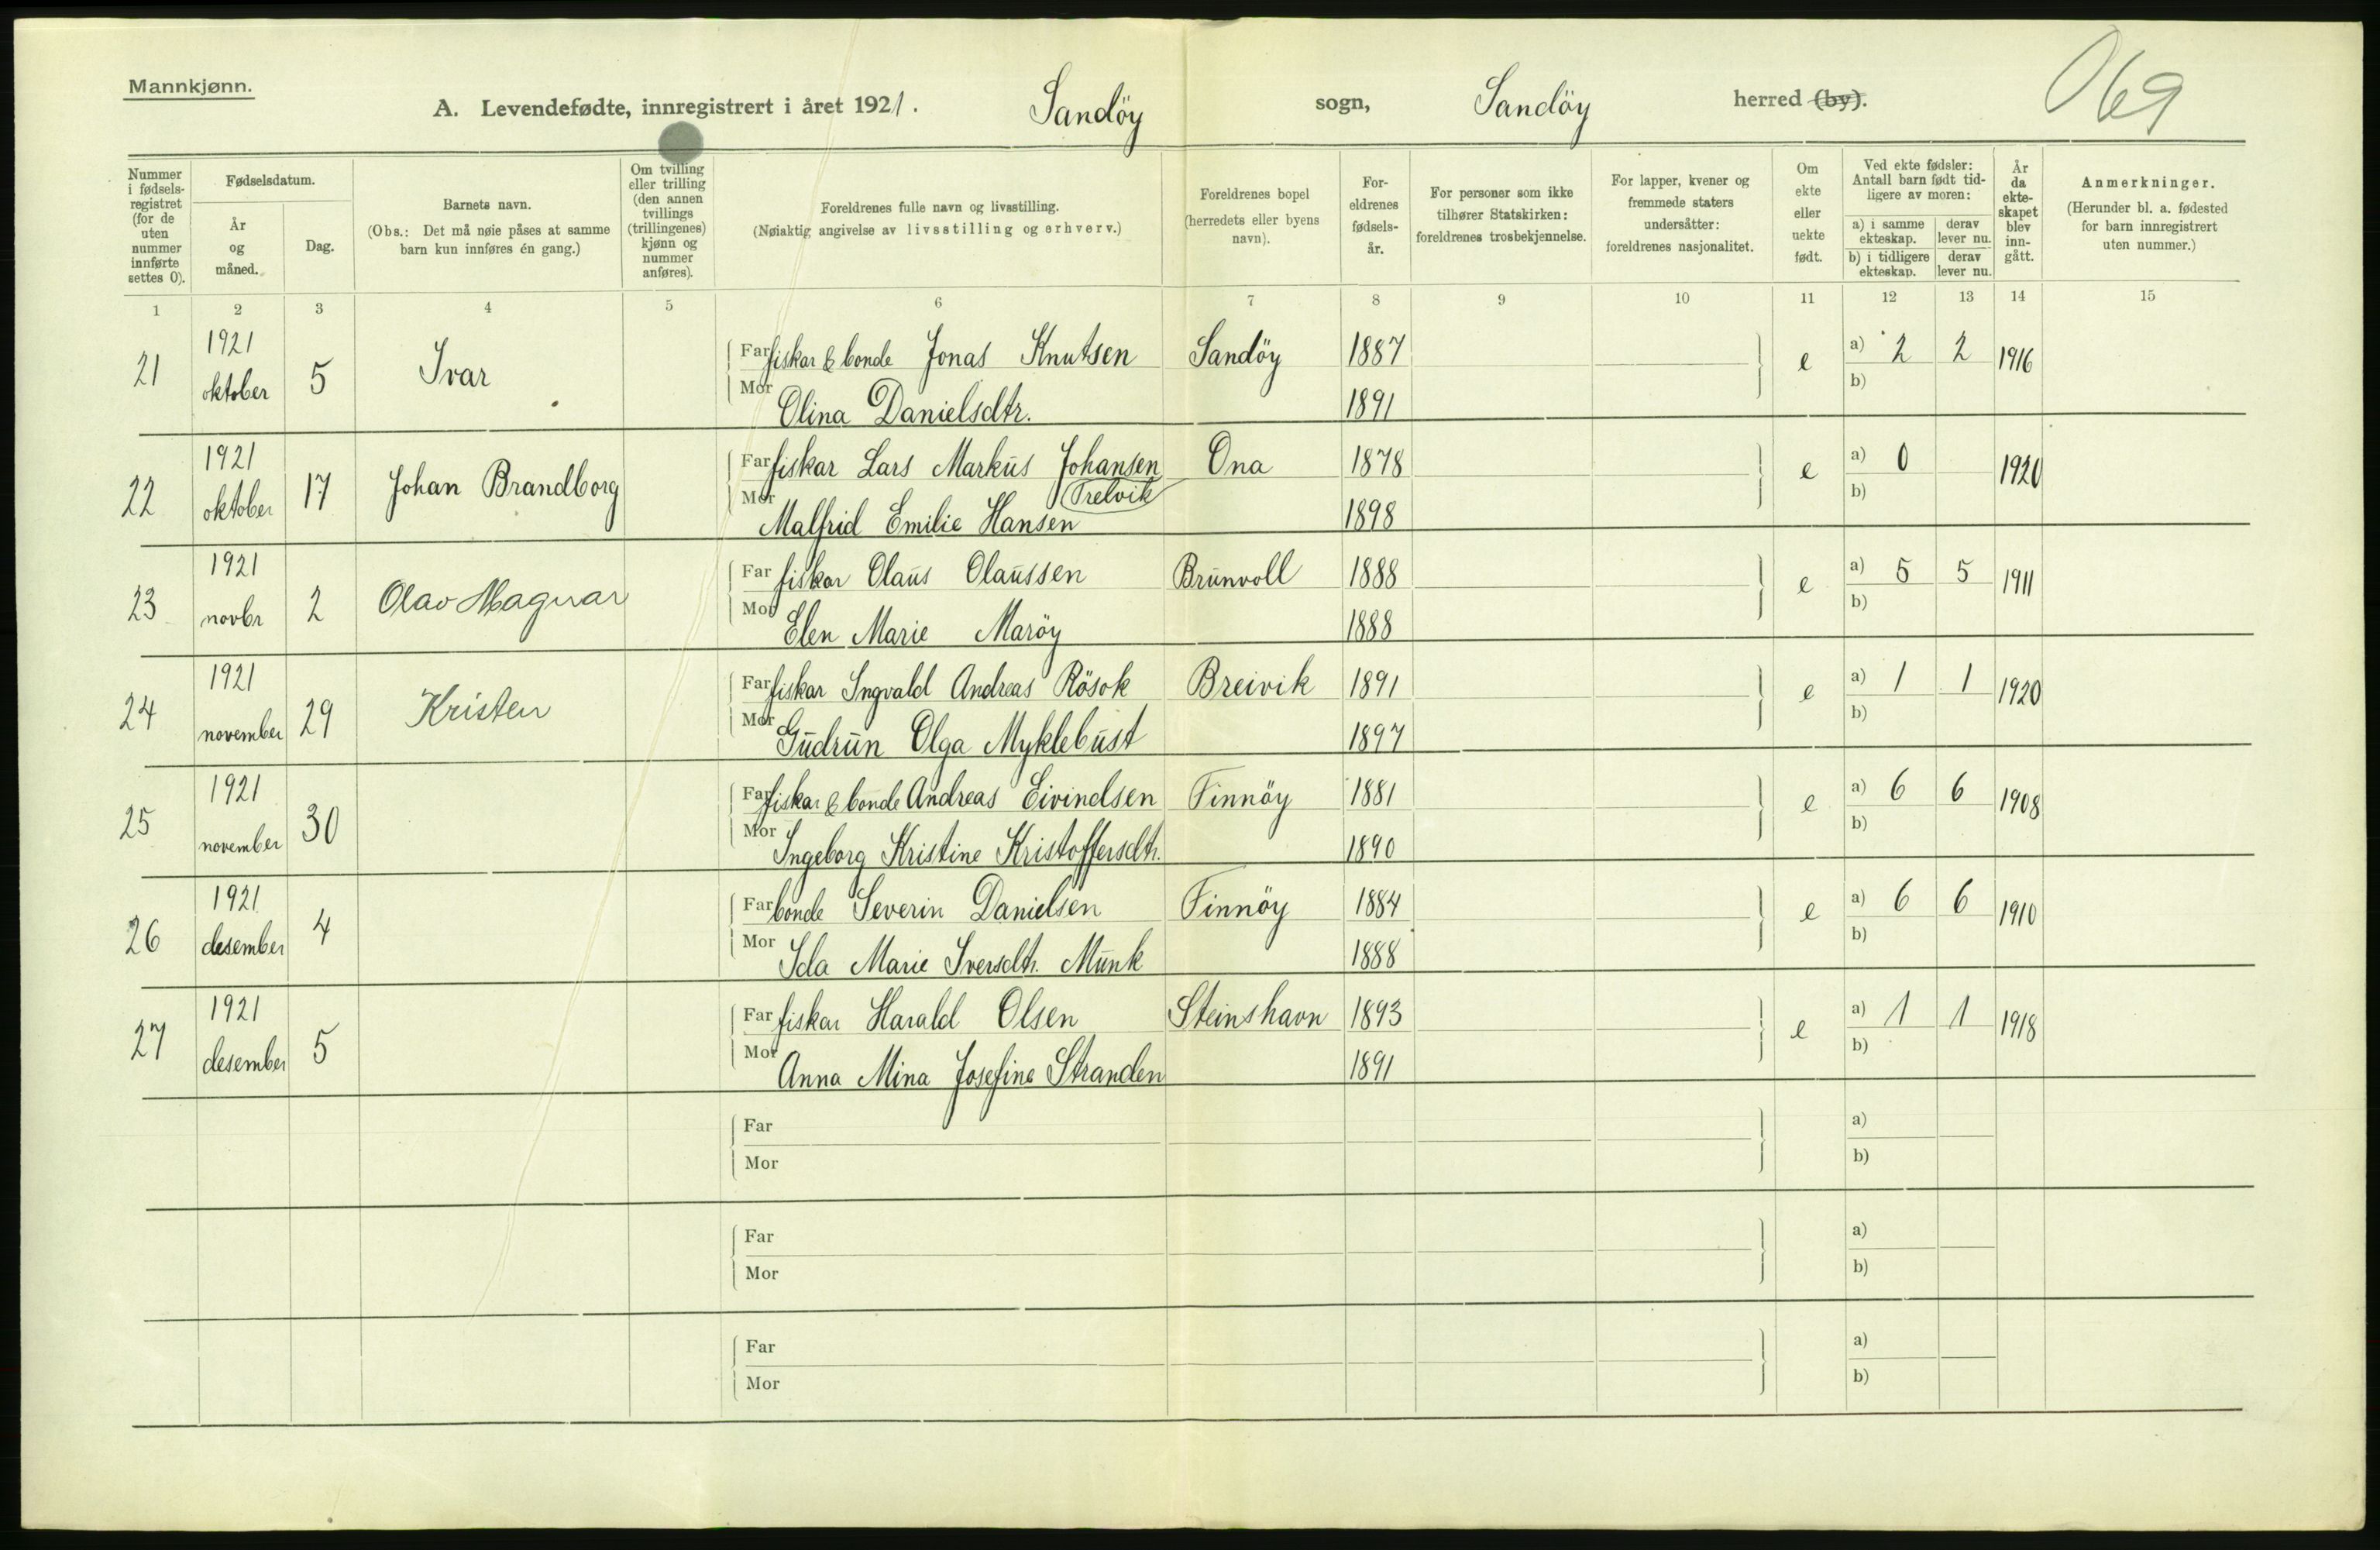 Mannkjønn.
A. Levendefødte, innregistrert i året 1921. Sandöy sogn, Sandöy herred (by). 069
Nummer i fødsels-registret (for de uten nummer innførte settes 0).
Fødselsdatum.
År og måned.
Dag.
Barnets navn.
(Obs.: Det må nøie påses at samme barn kun innføres én gang.)
Om tvilling eller trilling (den annen tvillings (trillingenes) kjønn og nummer anføres).
Foreldrenes fulle navn og livsstilling.
(Nøiaktig angivelse av livsstilling og erhverv.)
Foreldrenes bopel (herredets eller byens navn).
For-eldrenes fødsels-år.
For personer som ikke tilhører Statskirken: foreldrenes trosbekjennelse.
For lapper, kvener og fremmede staters undersåtter: foreldrenes nasjonalitet.
Om ekte eller uekte født.
Ved ekte fødsler: Antall barn født tid-ligere av moren:
a) i samme ekteskap. derav lever nu.
b) i tidligere ekteskap. derav lever nu.
År da ekte-skapet blev inn-gått.
Anmerkninger.
(Herunder bl. a. fødested for barn innregistrert uten nummer.)
1 2 3 4 5 6 7 8 9 10 11 12 13 14 15
21 1921 oktober 5 Ivar Far fiskar & bonde Jonas Knutsen Sandöy 1887 e a) 2 2 1916
Mor Olina Danielsdtr. 1891 b)
22 1921 oktober 17 Johan Brandborg Far fiskar Lars Markus Johansen Ona 1878 e a) 0 1920
Trelvik
Mor Malfrid Emilie Hansen 1898 b)
23 1921 novbr 2 Olav Magnar Far fiskar Olaus Olaussen Brunvoll 1888 e a) 5 5 1911
Mor Elen Marie Maröy 1888 b)
24 1921 november 29 Kristen Far fiskar Ingvald Andreas Rösok Breivik 1891 e a) 1 1 1920
Mor Gudrun Olga Myklebust 1897 b)
25 1921 november 30 Far fiskar & bonde Andreas Eivindsen Finnöy 1881 e a) 6 6 1908
Mor Ingeborg Kristine Kristoffersdtr. 1890 b)
26 1921 desember 4 Far bonde Severin Danielsen Finnöy 1884 e a) 6 6 1910
Mor Ida Marie Iversdtr. Munk 1888 b)
27 1921 desember 5 Far fiskar Harald Olsen Steinshavn 1893 e a) 1 1 1918
Mor Anna Mina Josefine Stranden 1891 b)
Far a)
Mor b)
Far a)
Mor b)
Far a)
Mor b)